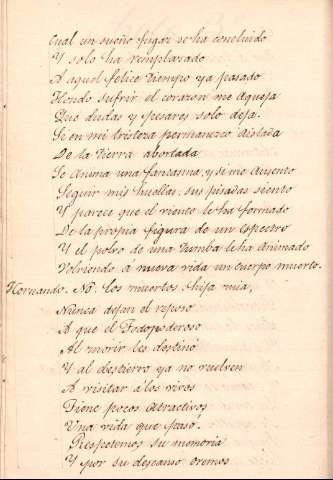 Cual un sueño fugaz se ha concluido
Y solo ha remplazado
A aquel felice tiempo ya pasado
Hondo sufrir el corazon me aqueja
Que dudas y pesares solo deja.
Si en mi tristeza permanezco aislada
De la tierra abortada
Se anima una fantasma, y si me ausento
Seguir mis huellas, sus pisadas siento
Y parece que el viento le ha formado
De la propia figura de un espectro
Y el polvo de una tumba le ha animado
Volviendo á nueva vida un cuerpo muerto.
Hernando. No. los muertos hija mia,
Nunca dejan el reposo
A que el Todopoderoso
Al morir les destinó
Y al destierro ya no vuelven
A visitar á los vivos
Tiene pocos atractivos
Una vida que pasó.
Respetemos su memoria
Y por su descanso oremos